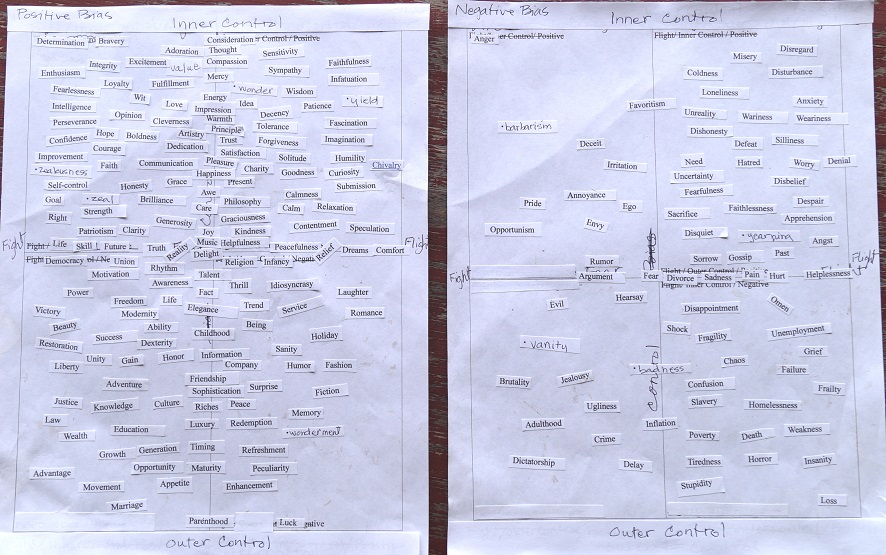 Positive Bias
Inner Control
Determination Bravery Consideration Control / Positive
Adoration Thought Sensitivity
Integrity Excitement value Compassion Faithfulness
Enthusiasm Mercy Sympathy Infatuation
Fearlessness Loyalty Fulfillment wonder Wisdom
Intelligence Wit Love Energy Idea Patience yield
Impression Decency
Perseverance Opinion Cleverness Warmth Fascination
Confidence Hope Boldness Artistry Principle Tolerance Imagination
Courage Dedication Trust Forgiveness
Improvement Satisfaction Solitude Humility
Faith Communication Pleasure Charity Goodness Curiosity Chivalry
zealousness Happiness
Self-control Honesty Grace Present Submission
Goal zeal Brilliance Awe Calmness
Right Strength Care Calm Relaxation
Patriotism Clarity Generosity Graciousness Contentment Speculation
Joy Kindness
Fight Fight / Life Skill Future Truth Reality Music Helpfulness Peacefulness Relief Dreams Comfort Flight
Fight Democracy Union Delight Religion Infancy
Motivation Rhythm Talent
Power Awareness Fact Thrill Idiosyncrasy Laughter
Freedom Life
Victory Modernity Elegance Trend Service Romance
Beauty Ability Being
Restoration Success Dexterity Childhood Sanity Holiday
Liberty Unity Gain Honor Information Company Humor Fashion
Adventure Friendship
Sophistication Surprise Fiction
Justice Knowledge Culture Riches Peace Memory
Law Luxury Redemption
Wealth Education wonderment
Growth Generation Timing Refreshment
Advantage Opportunity Maturity Peculiarity
Movement Appetite Enhancement
Marriage
Parenthood Luck gative
Outer Control
Negative Bias
Inner Control
Anger er Control / Positive Flight / Inner Control / Positive
Misery Disregard
Coldness Disturbance
Loneliness
Favoritism Anxiety
Unreality Wariness Weariness
barbarism Dishonesty
Deceit Defeat Silliness
Irritation Need Hatred Worry Denial
Uncertainty Disbelief
Annoyance Fearfulness
Pride Ego Faithlessness Despair
Sacrifice Apprehension
Opportunism Envy Disquiet yearning Angst
Rumor Sorrow Gossip Past
Fight Argument Fear Divorce Sadness Pain Hurt Helplessness Flight
Flight / Inner Control / Negative
Evil Hearsay Disappointment Omen
vanity Shock Fragility Unemployment
Grief
badness Chaos Failure
Brutality Jealousy control Confusion Frailty
Ugliness Slavery Homelessness
Adulthood Inflation
Crime Poverty Death Weakness
Dictatorship Delay Tiredness Horror Insanity
Stupidity
Loss
Outer Control